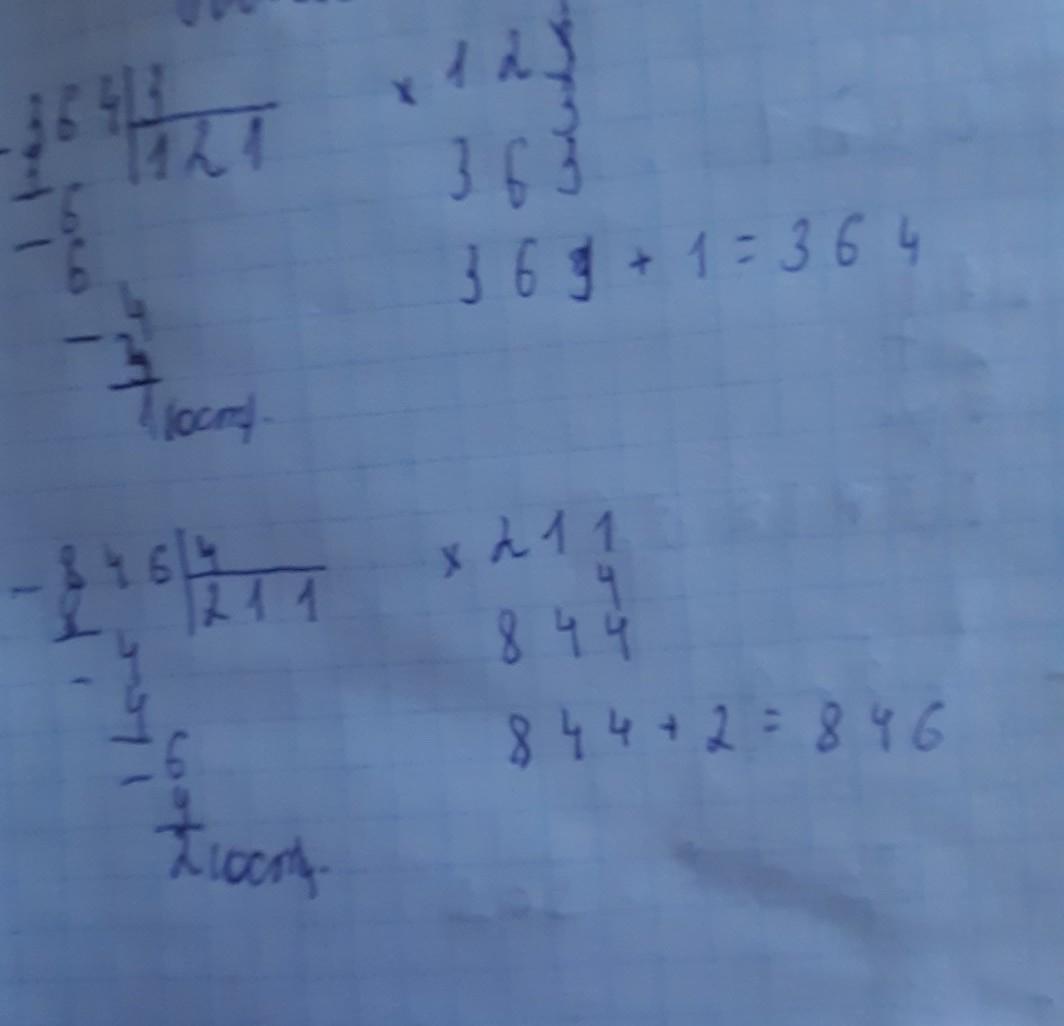 - 364 | 3
3 | 121
- 6
6
- 4
3
1 (ост).
× 12
3
363
363 + 1 = 364
- 846 | 4
8 | 211
- 4
4
- 6
4
2 (ост).
× 211
4
844
844 + 2 = 846